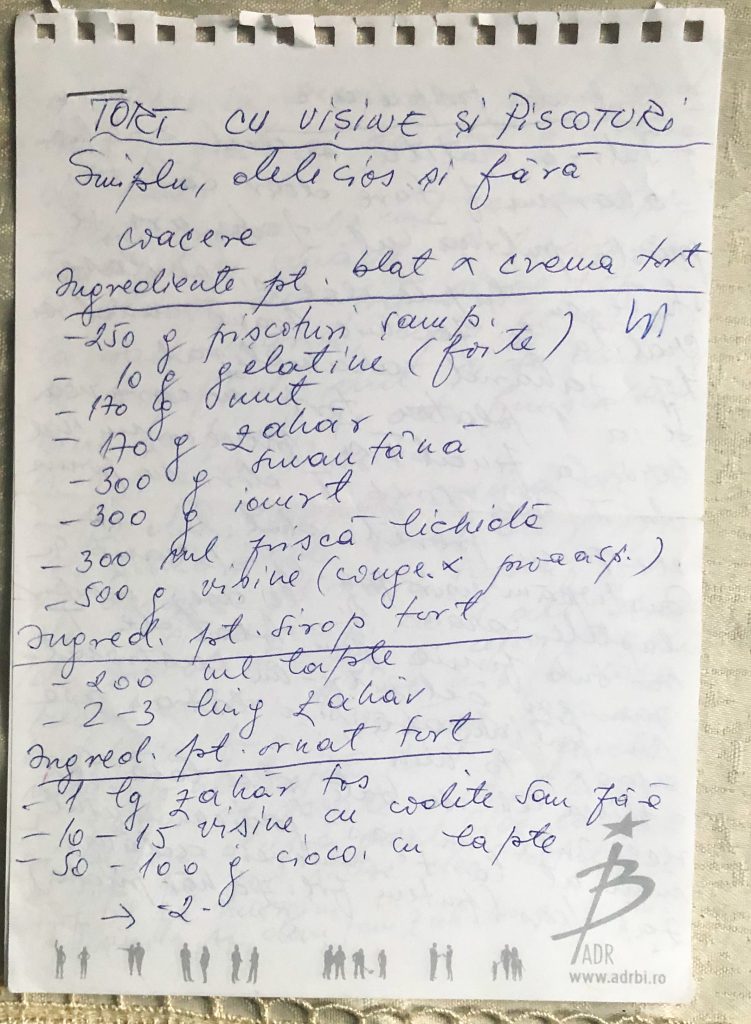 TORT CU VIȘINE ȘI PISCOTURI
Simplu, delicios și fără
coacere
Ingrediente pt. blat & crema tort
- 250 g piscoturi șamp.
- 10 g gelatine (forte)
- 170 g unt
- 170 g zahăr
- 300 g smântână
- 300 g iaurt
- 300 ml frișcă lichidă
- 500 g vișine (conge. & proasp.)
Ingred. pt. sirop tort
- 200 ml lapte
- 2-3 ling zahăr
Ingred. pt. ornat tort
- 1 lg zahăr tos
- 10 - 15 vișine, cu codite sau fără
- 50 - 100 g cioco. cu lapte
→ -2-
B
ADR
www.adrbi.ro